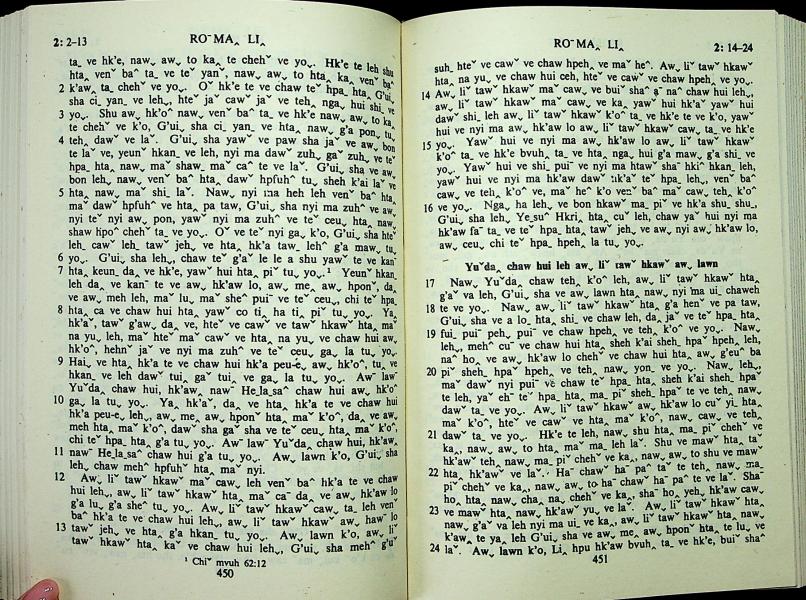 2: 2–13
RO¯ MA‸ LI‸
ta˯ ve hk'e, naw˯ aw˯ to ka˰ te chehˇ ve yo˯. Hk'e te leh shu
hta˰ venˇ baˆ ta˯ ve teˇ yanˇ, naw˯ aw˯ to hta˰ ka˰ venˇ baˇ
2 k'aw˰ ta˯ chehˇ ve yo˯. Oˇ hk'e te ve chaw teˇ hpa˰ hta˰ G'ui˯
sha ci˰ yan˯ ve leh˯, hteˇ jaˇ cawˇ jaˇ ve teh˰ nga˯ hui shi˯ ve
3 yo˯. Shu aw˯ hk'oˆ nawˇ venˇ baˆ ta˯ ve hk'e naw˯ aw˯ to ka˰
te chehˇ ve k'o, G'ui˯ sha ci˰ yan˯ ve hta˰ naw˯ g'a pon˯ tu˯
4 teh˰ dawˇ ve laˇ. G'ui˯ sha yawˇ ve paw sha jaˇ ve aw˯ bon
te laˇ ve, yeunˇ hkan˯ ve leh, nyi ma dawˇ zuh˯ gaˇ zuh˯ ve teˇ
hpa hta˰ naw˯ maˇ shaw˯ maˇ caˆ te ve laˇ. G'ui˯ sha ve aw˯
bon leh˯ naw˯ venˇ baˆ hta˰ dawˇ hpfuhˆ tu˯ sheh k'ai laˇ ve
5 hta˰ naw˯ maˇ shi˯ laˇ. Naw˯ nyi ma heh leh venˇ baˆ hta˰
maˇ dawˇ hpfuhˆ ve hta˰ pa taw˯ G'ui˯ sha nyi ma zuhˆ ve aw˯
nyi teˇ nyi aw˯ pon, yawˇ nyi ma zuhˆ ve teˇ ceu˯ hta˰ naw˯
shaw hpoˆ chehˇ ta˯ ve yo˯. Oˇ ve teˇ nyi ga˯ k'o, G'ui˯ sha hteˇ
leh˯ cawˇ leh˯ tawˇ jeh˯ ve hta˰ hk'a taw˯ lehˆ g'a maw˯ tu˯
6 yo˯. G'ui˯ sha leh˯, chaw teˇ g'aˇ le le a shu yawˇ te ve kanˇ
7 hta˰ keun˯ da˯ ve hk'e, yawˇ hui hta˰ piˇ tu˯ yo˯.¹ Yeunˇ hkan˯
leh da˯ ve kanˇ te ve aw˯ hk'aw lo, aw˯ me˯ aw˯ hponˇ, da˯
ve aw˯ meh leh, maˇ lu˯ maˇ sheˆ puiˇ ve teˇ ceu˯, chi teˇ hpa˰
8 hta˰ ca ve chaw hui hta˰ yawˇ co ti˯ ha ti˰ piˇ tu˯ yo˯. Ya˰
hk'aˇ, tawˇ g'aw˯ da˯ ve, hteˇ ve cawˇ ve tawˇ hkawˇ hta˰ maˇ
na yu˯ leh, maˇ hteˇ maˇ cawˇ ve hta˰ na yu˯ ve chaw hui aw˯
hk'oˆ, hehnˇ jaˇ ve nyi ma zuhˆ ve teˇ ceu˯ ga˯ la tu˯ yo˯.
9 Hai˯ ve hta˰ hk'a te ve chaw hui hk'a peu-e˯ aw˯ hk'oˆ, tu˯ ve
hkan˯ ve leh dawˇ tui˯ gaˇ tui˯ ve ga˯ la tu˯ yo˯. Awˇ lawˇ
Yuˇda˯ chaw hui, hk'aw˯ nawˇ He˯la˯saˆ chaw hui aw˯ hk'oˆ
10 ga˯ la tu˯ yo˯. Ya˰ hk'aˇ, da˯ ve hta˰ hk'a te ve chaw hui
hk'a peu-e˯ leh˯, aw˯ me˯ aw˯ hponˇ hta˰ maˇ k'oˆ, da˯ ve aw˯
meh hta˰ maˇ k'oˆ, dawˇ sha gaˇ sha ve teˇ ceu˯ hta˰ maˇ k'oˆ,
chi teˇ hpa˰ hta˰ g'a tu˯ yo˯. Awˇ lawˇ Yuˇda˯ chaw hui, hk'aw˯
11 nawˇ He˯la˯saˆ chaw hui g'a tu˯ yo˯. Aw˯ lawn k'o, G'ui˯ sha
leh˯ chaw mehˆ hpfuhˇ hta˰ maˇ nyi.
12 Aw˯ liˇ tawˇ hkawˇ maˇ caw˯ leh venˇ baˆ hk'a te ve chaw
hui leh˯, aw˯ liˇ tawˇ hkawˇ hta˰ maˇ caˆ daˆ ve aw˯ hk'aw lo
g'a lu˯ g'a sheˆ tu˯ yo˯. Aw˯ liˇ tawˇ hkawˇ caw˯ ta˯ leh venˇ
baˆ hk'a te ve chaw hui leh˯, aw˯ liˇ tawˇ hkawˇ aw˯ hawˇ lo
13 tawˇ jeh˯ ve hta˰ g'a hkan˯ tu˯ yo˯. Aw˯ lawn k'o, aw˯ liˇ
tawˇ hkawˇ hta˰ kaˇ ve chaw hui leh˯, G'ui˯ sha mehˆ g'uˇ
¹ Chiˇ mvuh 62:12
450
RO¯ MA‸ LI‸
2: 14–24
suh˯ hteˇ ve cawˇ ve chaw hpeh˰ ve maˇ heˆ. Aw˯ liˇ tawˇ hkawˇ
hta˰ na yu˯ ve chaw hui ceh, hteˇ ve cawˇ ve chaw hpeh˰ ve yo˯.
14 Aw˯ liˇ tawˇ hkawˇ maˇ caw˯ ve buiˇ shaˆ aˇ naˆ chaw hui leh˯,
aw˯ liˇ tawˇ hkawˇ maˇ caw˯ ve ka˰ yawˇ hui hk'aˇ yawˇ hui
dawˇ shi˯ leh aw˯ liˇ tawˇ hkawˇ k'oˆ ta˯ ve hk'e te ve k'o, yawˇ
hui ve nyi ma aw˯ hk'aw lo aw˯ liˇ tawˇ hkawˇ caw˯ ta˯ ve hk'e
15 yo˯. Yawˇ hui ve nyi ma aw˯ hk'aw lo, aw˯ liˇ tawˇ hkawˇ
k'oˆ ta˯ ve hk'e bvuh˰ ta˯ ve hta˰ nga˯ hui g'a maw˯ g'a shi˯ ve
yo˯. Yawˇ hui ve shi˯ puiˇ ve nyi ma htawˇ shaˇ hkiˆ hkan˯ leh,
yawˇ hui ve nyi ma hk'aw dawˇ hk'aˇ teˇ hpa˰ leh˯, venˇ baˆ
caw˯ ve teh˰ k'oˆ ve, maˇ heˆ k'o venˇ baˆ maˇ caw˯ teh˰ k'oˆ
16 ve yo˯. Nga˯ ha leh˯ ve bon hkawˇ ma˯ piˇ ve hk'a shu˯ shu˯,
G'ui˯ sha leh˯ Ye˯suˆ Hkri˰ hta˰ cuˇ leh, chaw yaˇ hui nyi ma
hk'aw faˇ ta˯ ve teˇ hpa˰ hta˰ tawˇ jeh˯ ve aw˯ nyi aw˯ hk'aw lo,
aw˯ ceu˯ chi teˇ hpa˰ hpeh˰ la tu˯ yo˯.
Yuˇda˯ chaw hui leh aw˯ liˇ tawˇ hkawˇ aw˯ lawn
17 Naw˯ Yuˇda˯ chaw teh˰ k'oˆ leh, aw˯ liˇ tawˇ hkawˇ hta˰
g'aˇ va leh, G'ui˯ sha ve aw˯ lawn hta˰ naw˯ nyi ma ui˯ chaweh
18 te ve yo˯. Naw˯ aw˯ liˇ tawˇ hkawˇ hta˰ g'a henˇ ve pa taw˯
G'ui˯ sha ve a lo˯ hta˰ shi˯ ve chaw leh, da˯ jaˇ ve teˇ hpa˰ hta˰
19 fui˯ puiˇ peh˯ puiˇ ve chaw hpeh˰ ve teh˰ k'oˆ ve yo˯. Naw˯
leh˯, mehˆ cuˉ ve chaw hui hta˰ sheh k'ai sheh˯ hpaˇ hpeh˰ leh,
naˆ ho˰ ve aw˯ hk'aw lo chehˇ ve chaw hui hta˰ aw˯ g'euˆ ba
20 piˇ sheh˯ hpaˇ hpeh˰ ve teh˰ naw˯ yon˯ ve yo˯. Naw˯ leh˯,
maˇ dawˇ nyi puiˇ ve chaw teˇ hpa˰ hta˰ sheh k'ai sheh˯ hpaˇ
te leh, yaˇ ehˉ teˇ hpa˰ hta˰ ma˯ piˇ sheh˯ hpaˇ te ve teh˰ naw˯
dawˇ ta˯ ve yo˯. Aw˯ liˇ tawˇ hkawˇ aw˯ hk'aw lo cuˇ yi˯ hta˰
maˇ k'oˆ, hteˇ ve cawˇ ve hta˰ maˇ k'oˆ, naw˯ caw˯ ve teh˰
21 dawˇ ta˯ ve yo˯. Hk'e te leh, naw˯ shu hta˰ ma˯ piˇ chehˇ ve
ka˰, naw˯ aw˯ to hta˰ maˇ ma˯ leh laˇ. Shu ve mawˇ hta˰ taˇ
hk'awˇ teh˰ naw˯ ma˯ piˇ chehˇ ve ka˰, naw˯ aw˯ to shu ve mawˇ
22 hta˰ hk'awˇ ve laˇ. Haˇ chawˇ haˆ paˇ taˇ te teh˰ naw˯ ma˯
piˇ chehˇ ve ka˰, naw˯ aw˯ to haˇ chawˇ haˆ paˇ te ve laˇ. Shaˇ
ho˰ hta˰ naw˯ cha na˯ chehˇ ve ka˰, shaˇ ho˰ yeh˯ hk'aw caw˯
23 ve mawˇ hta˰ naw˯ hk'awˇ yu˯ ve laˇ. Aw˯ liˇ tawˇ hkawˇ hta˰
naw˯ g'aˇ va leh nyi ma ui˯ ve ka˰, aw˯ liˇ tawˇ hkawˇ hta˰
k'aw˰ te ya˰ leh G'ui˯ sha ve aw˯ me˯ aw˯ hponˇ hta˰ te lu˯ ve
24 laˇ. Aw˯ lawn k'o, Li˰ hpu hk'aw bvuh˰ ta˯ ve hk'e, buiˇ shaˆ
451